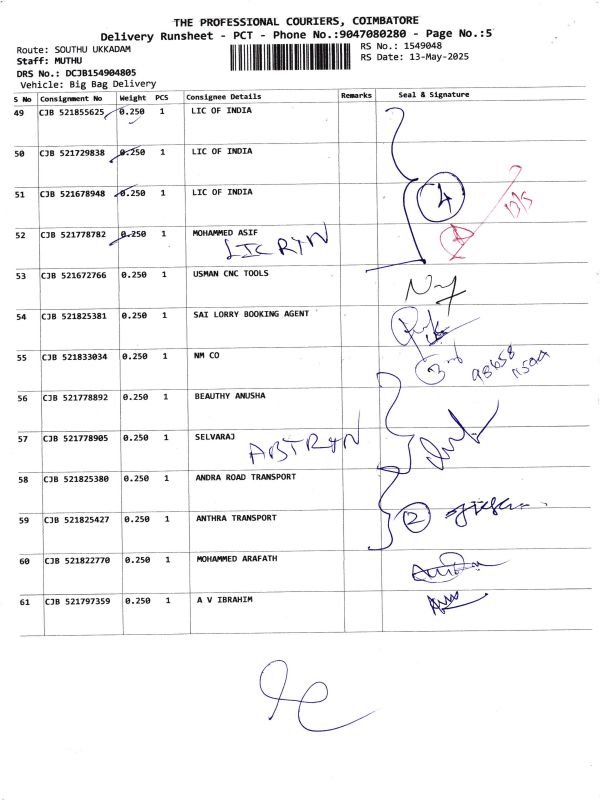 THE PROFESSIONAL COURIERS, COIMBATORE
Delivery Runsheet - PCT - Phone No.:9047080280 - Page No.:5
Route: SOUTHU UKKADAM
RS No.: 1549048
Staff: MUTHU
RS Date: 13-May-2025
DRS No.: DCJB154904805
Vehicle: Big Bag Delivery
S No Consignment No Weight PCS Consignee Details Remarks Seal & Signature
49 CJB 521855625 0.250 1 LIC OF INDIA
50 CJB 521729838 0.250 1 LIC OF INDIA
51 CJB 521678948 0.250 1 LIC OF INDIA
4
13/5
52 CJB 521778782 0.250 1 MOHAMMED ASIF
LIC RTN
53 CJB 521672766 0.250 1 USMAN CNC TOOLS
54 CJB 521825381 0.250 1 SAI LORRY BOOKING AGENT
55 CJB 521833034 0.250 1 NM CO
56 CJB 521778892 0.250 1 BEAUTHY ANUSHA
57 CJB 521778905 0.250 1 SELVARAJ
ABTRTN
58 CJB 521825380 0.250 1 ANDRA ROAD TRANSPORT
59 CJB 521825427 0.250 1 ANTHRA TRANSPORT
2
60 CJB 521822770 0.250 1 MOHAMMED ARAFATH
61 CJB 521797359 0.250 1 A V IBRAHIM